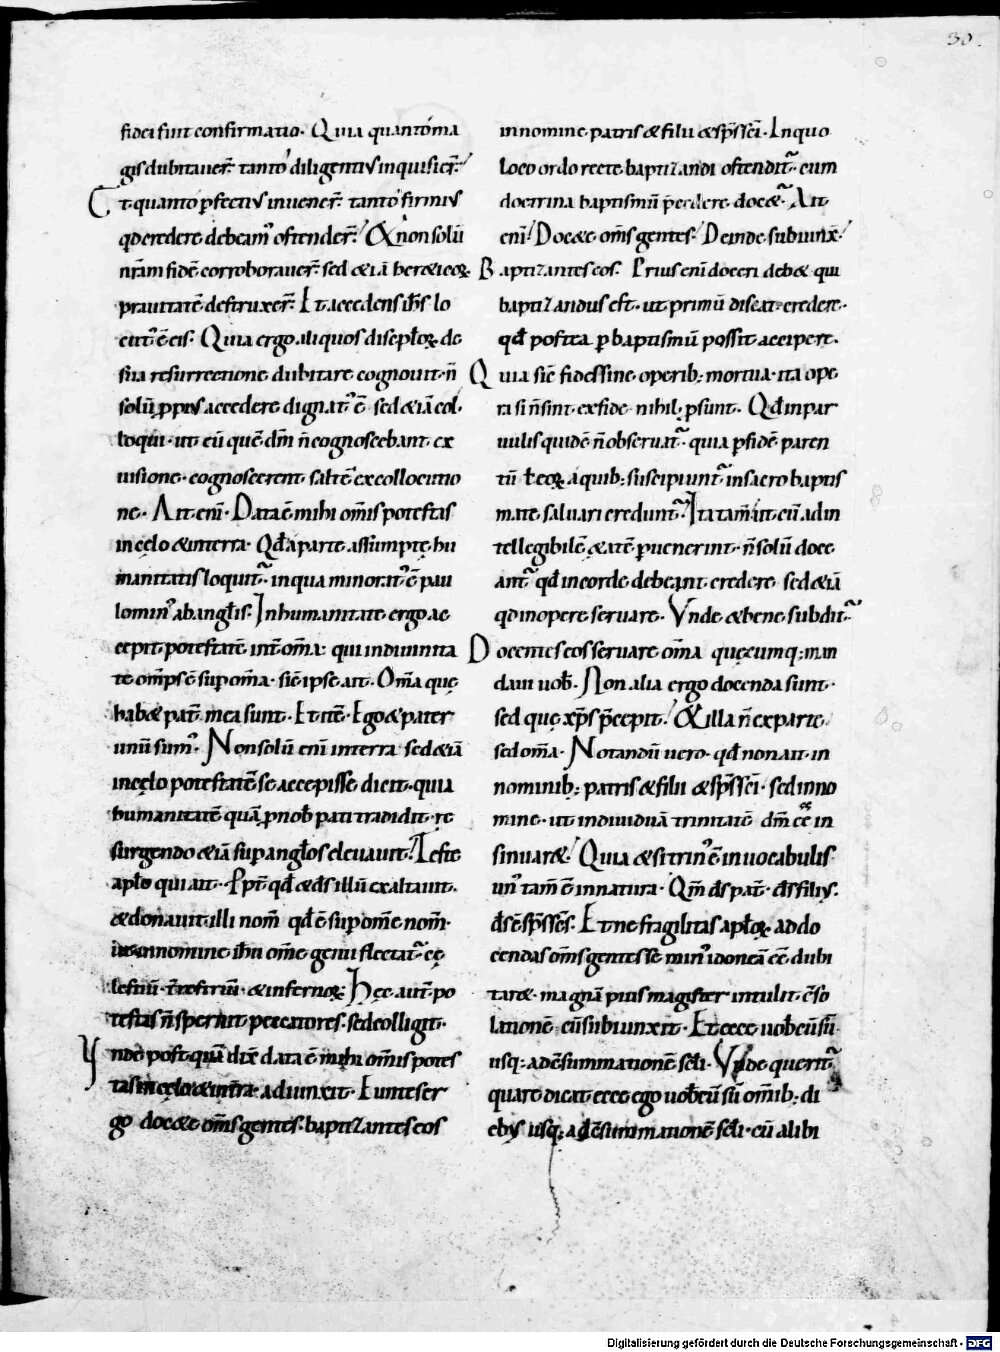 30.
fidei sint confirmatio. Quia quanto ma
gis dubitauer̄. tanto diligentius inquisier̄.
Et quanto ꝑfectius inuener̄. tanto firmius
qd credere debeam' ostender̄. & non solū
nr̄am fidē corroborauer̄. sed &iā her&icoꝝ
prauitatē destruxer̄. Et accedens ih̄s lo
cut' ē eis. Quia ergo aliquos discipl̄oꝝ de
sua resurrectione dubitare cognouit. n̄
solū ꝓpius accedere dignat' ē sed &iā col
loqui. ut eū quē dm̄ n̄ cognoscebant ex
uisione. cognoscerent saltē ex collocutio
ne. Ait eni. Data ē mihi om̄is potestas
in cęlo & in terra. Qd̄ a parte assumptę hu
manitatis loquit̄. in qua minorat' ē pau
lo min' ab angl̄is. In humanitate ergo ac
cepit potestatē int̄ om̄a. qui in diuinita
te om̄ps ē suꝑ om̄a. sic̄ ipse ait. Om̄a quę
hab& pat̄. mea sunt. Et itē. Ego & pater
unū sum'. Non solū eni in terra sed &iā
in cęlo potestatē se accepisse dicit. quia
humanitatē quā ꝓ nob̄ pati tradidit. re
surgendo &iā suꝑ angl̄os eleuauit. Teste
apl̄o qui ait. Ppt̄ qd̄ & ds̄ illū exaltauit.
& donauit illi nom̄ qd̄ ē suꝑ om̄e nom̄.
ut in nomine ih̄u om̄e genu flectat̄. cę
lestiū. t̄restriū. & infernoꝝ. Hęc aut̄ po
testas n̄ spernit peccatores. sed colligit.
Vnde postquā dix̄ data ē mihi om̄is potes
tas in cęlo & in t̄ra. adiunxit. Euntes er
go doc&e om̄s gentes. baptizantes eos
in nomine patris & filii & sp̄s sc̄i. In quo
loco ordo recte baptizandi ostendit̄. cum
doctrina baptismū p̄cedere doc&. Ait
eni. Doc&e om̄s gentes. Deinde subiunx̄.
Baptizantes eos. Prius eni doceri deb& qui
baptizandus est. ut primū discat credere.
qd̄ postea ꝑ baptismū possit accipere.
Quia sic̄ fides sine operib; mortua. ita ope
ra si n̄ sint ex fide nihil ꝓsunt. Qd̄ in par
uulis quidē n̄ obseruat̄. quia ꝑ fidē paren
tū t̄ eoꝝ a quib; suscipiunt̄ in sacro baptis
mate saluari credunt̄. Ita tam̄ ut cū ad in
tellegibilē &atē ꝑuenerint. n̄ solū doce
ant̄ qd̄ in corde debeant credere sed &iā
qd in opere seruare. Vnde & bene subdit̄.
Docentes eos seruare om̄a quęcumq; man
daui uob̄. Non alia ergo docenda sunt.
sed quę xp̄s p̄cepit. & illa n̄ ex parte.
sed om̄a. Notandū uero. qd̄ non ait in
nominib; patris & filii & sp̄s sc̄i. sed in no
mine. ut indiuiduā trinitatē dm̄ ēē in
sinuar&. Quia & si trin' ē in uocabulis
un' tam̄ ē in natura. Qm̄ ds̄ pat̄. ds̄ filius.
ds̄ ē sp̄s sc̄s. Et ne fragilitas apl̄oꝝ ad do
cendas om̄s gentes se min' idoneā ēē dubi
tar&. magnā pius magister intulit ɔso
lationē cū subiunxit. Et ecce uob̄cū sū
usq; ad ɔsummationē scl̄i. Vnde querit̄
quare dicat ecce ego uob̄cū sū om̄ib; di
ebus usq; ad ɔsummationē scl̄i. cū alibi
Digitalisierung gefördert durch die Deutsche Forschungsgemeinschaft - DFG